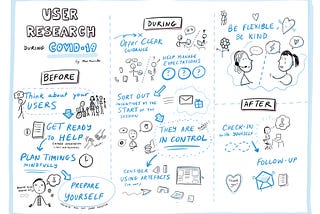 USER
RESEARCH
DURING COVID-19
BEFORE
Think about your
USERS
GET READY
to HELP
PLAN TIMINGS
MINDFULLY
PREPARE
YOURSELF
DURING
Offer CLEAR
GUIDANCE
HELP MANAGE
EXPECTATIONS
? ? ?
SORT OUT
INCENTIVES AT THE
START OF THE
SESSION
THEY ARE
IN CONTROL
CONSIDER
USING ARTEFACTS
BE FLEXIBLE,
BE KIND
AFTER
CHECK-IN
WITH YOURSELF
FOLLOW-UP